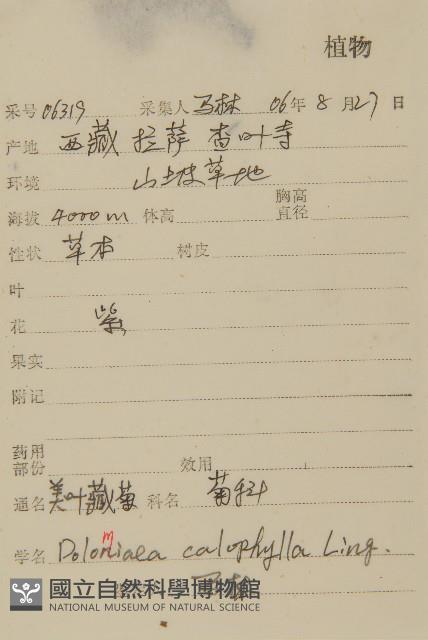 植物
采号 06319 采集人 马林 06年 8月27日
产地 西藏 拉萨 查叶寺
环境 山坡草地
海拔 4000m 体高 胸高直径
性状 草本 树皮
叶
花 紫
果实
附记
药用部份 效用
通名 美叶藏菊 科名 菊科
学名 Dolomiaea calophylla Ling.
國立自然科學博物館
NATIONAL MUSEUM OF NATURAL SCIENCE